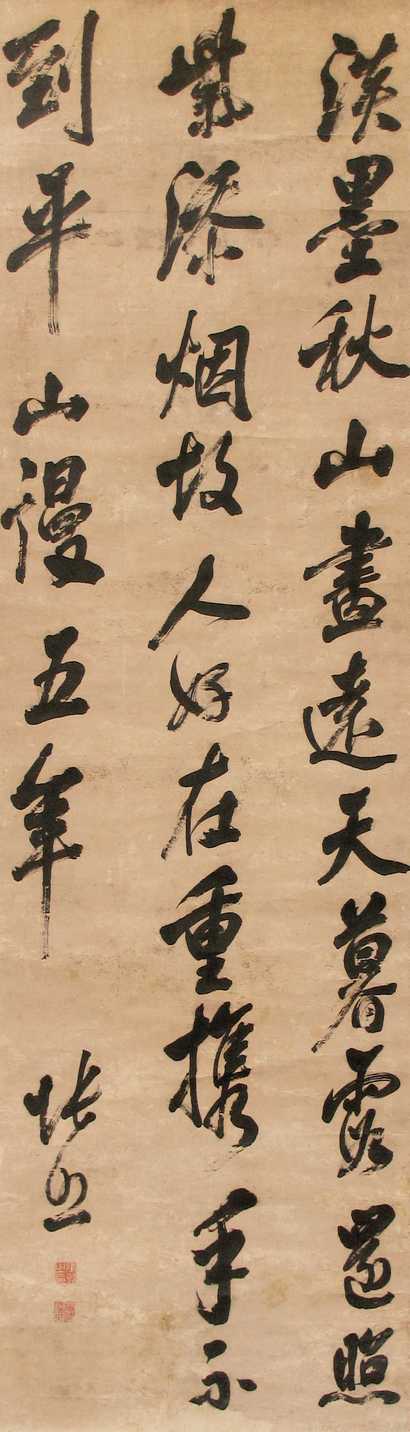 淡墨秋山畫遠天暮霞還照
紫添烟故人好在重攜手不
到平山謾五年
張照